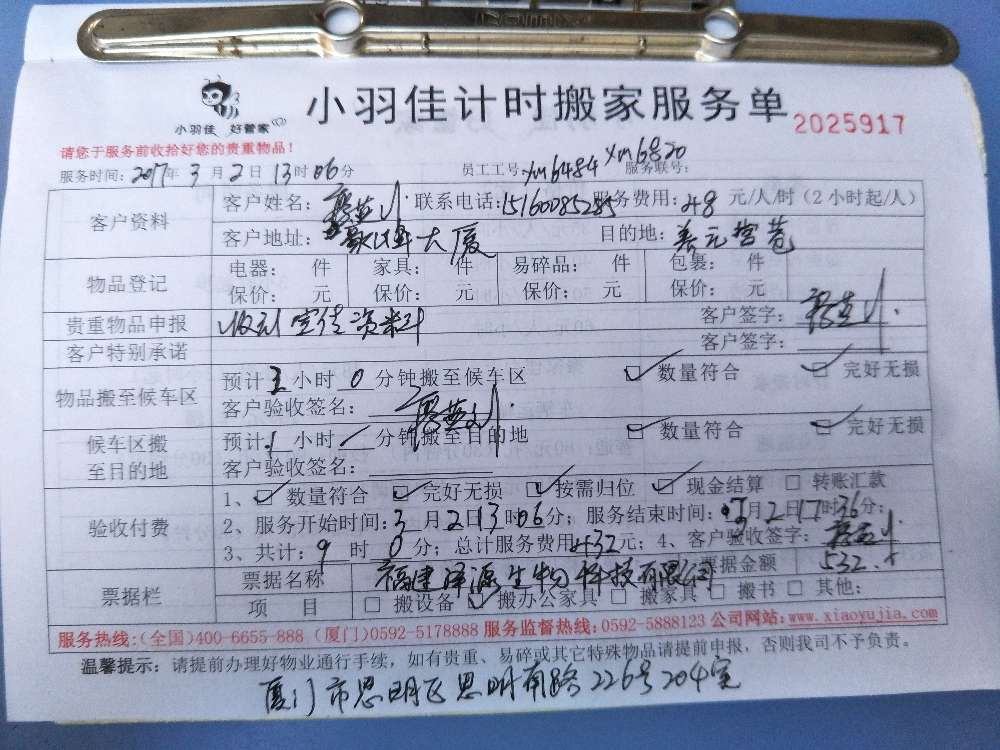 小羽佳 好管家
小羽佳计时搬家服务单
2025917
请您于服务前收拾好您的贵重物品！
服务时间：2017年 3月 2日 13时 06分 员工工号：xm6484 xm6820 服务联号：
客户资料 客户姓名： 联系电话：15160085285 服务费用：48 元/人/时（2小时起/人）
客户地址： 大厦 目的地：
物品登记 电器： 件 家具： 件 易碎品： 件 包裹： 件
保价： 元 保价： 元 保价： 元 保价： 元
贵重物品申报 收到宣传资料 客户签字：
客户特别承诺 客户签字：
物品搬至候车区 预计 小时 0 分钟搬至候车区 ☑ 数量符合 ☑ 完好无损
客户验收签名：
候车区搬至目的地 预计 1 小时 分钟搬至目的地 ☑ 数量符合 ☑ 完好无损
客户验收签名：
验收付费 1、☑ 数量符合 ☑ 完好无损 ☑ 按需归位 ☑ 现金结算 □ 转账汇款
2、服务开始时间：3月2日13时06分；服务结束时间： 月2日17时36分；
3、共计：9 时 0 分；总计服务费用：432元；4、客户验收签字：
票据栏 票据名称 福建泽源生物科技有限公司 票据金额 532.
项 目 □ 搬设备 ☑ 搬办公家具 □ 搬家具 □ 搬书 □ 其他：
服务热线：（全国）400-6655-888（厦门）0592-5178888 服务监督热线：0592-5888123 公司网站：www.xiaoyujia.com
温馨提示：请提前办理好物业通行手续，如有贵重、易碎或其它特殊物品请提前申报，否则我司不予负责。
厦门市思明区思明南路226号204室